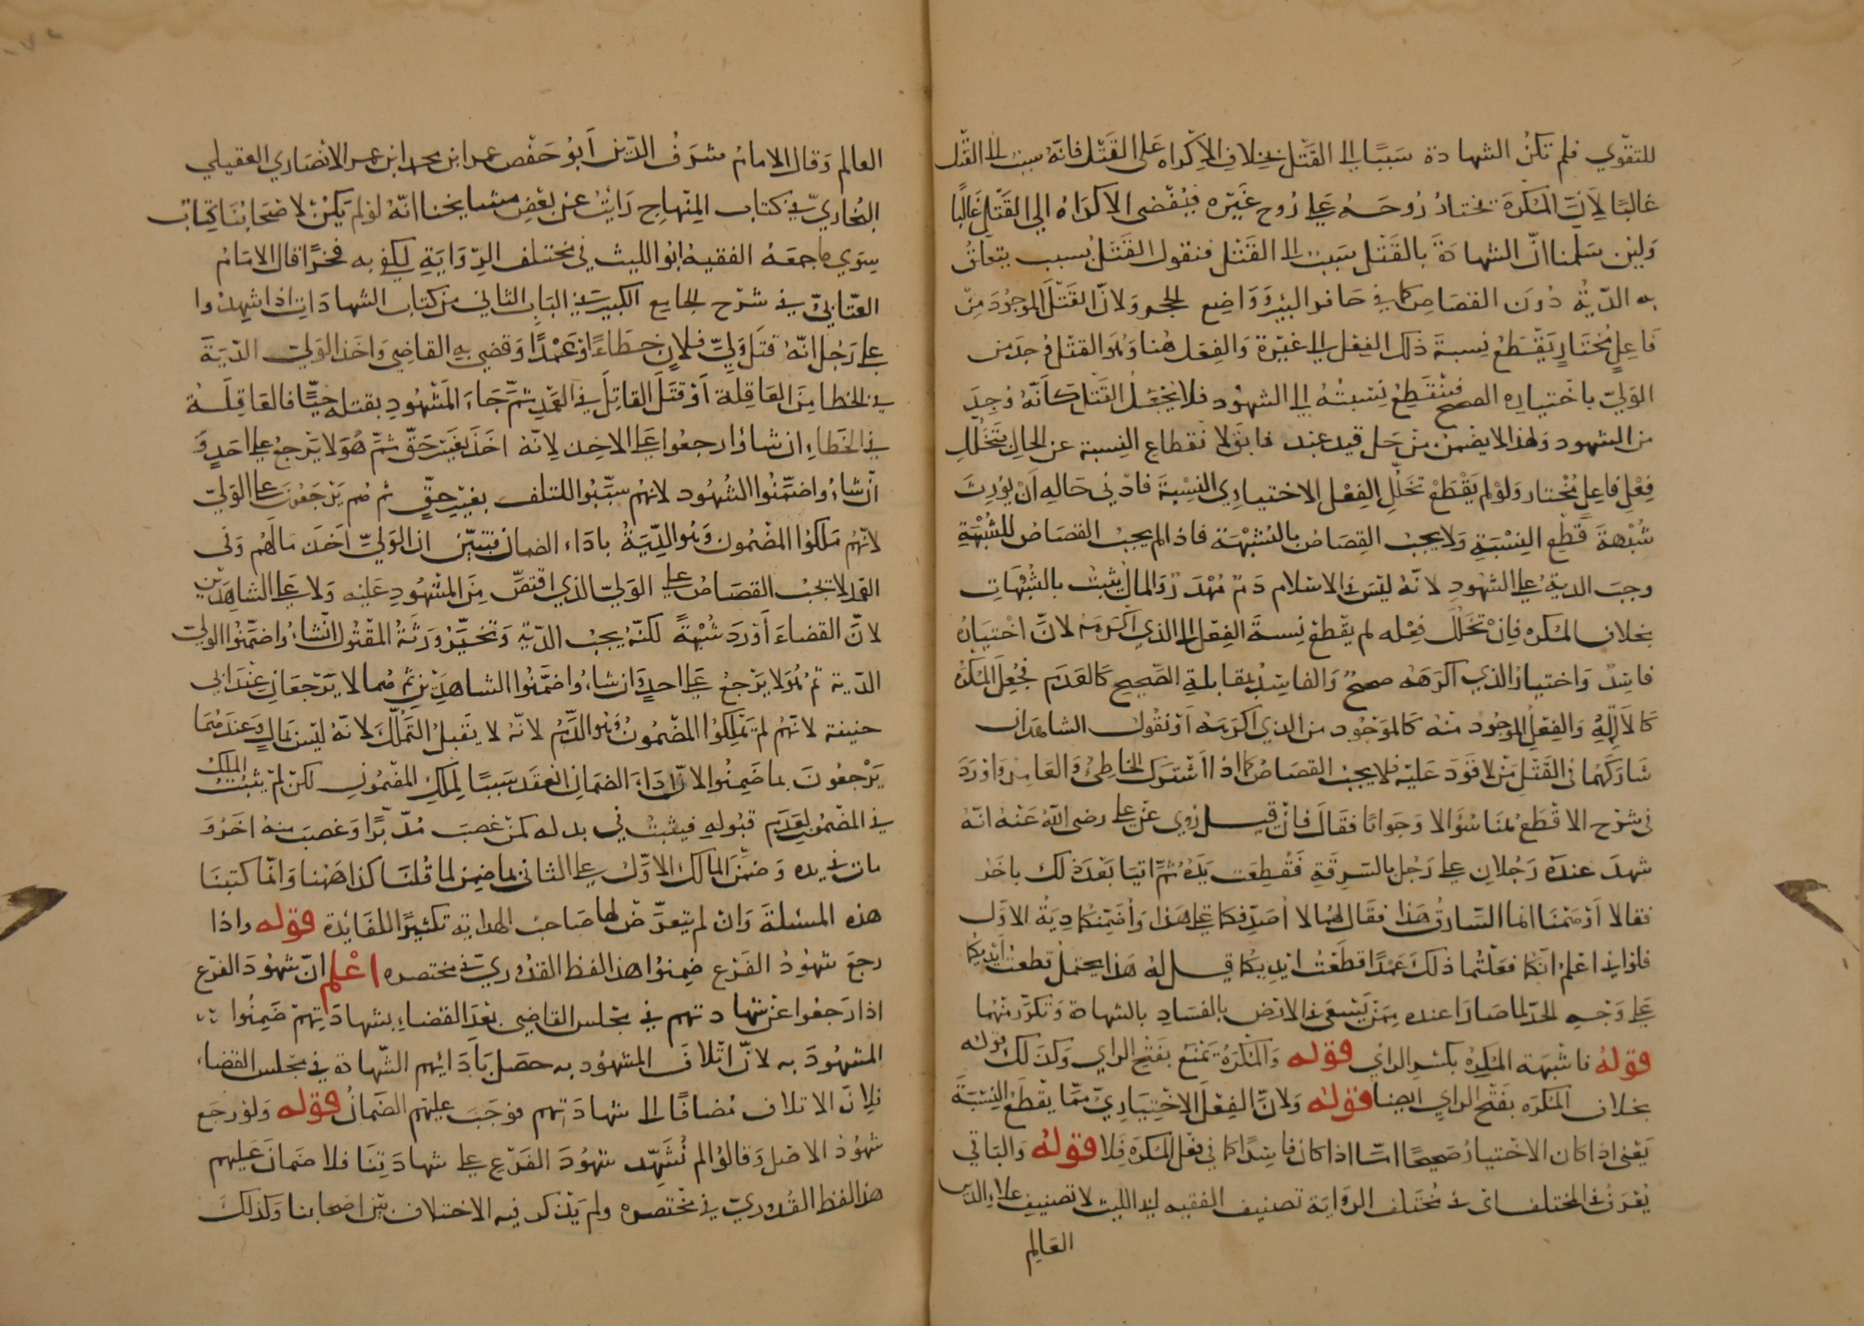 للتقوي فلم تكن الشهادة سببًا الى القتل بخلاف الاكراه على القتل فانه سبب الى القتل
غالبًا لان المكره يختار روحه على روح غيره فيفضى الاكراه الى القتل غالبًا
ولين سلمنا ان الشهادة بالقتل سبب الى القتل فنقول القتل بسبب يتعلق
به الدية دون القصاص كما في حافر البير وواضع الحجر ولان القتل الموجود من
فاعل مختار يقطع نسبة ذلك الفعل الى غيره والفعل هنا وهو القتل وجد من
الولي باختياره الصحيح فينقطع نسبته الى الشهود فلا يجعل القتل كانه وجد
من الشهود ولهذا لا يضمن من حل قيد عبد فابق لانقطاع النسبة عن الحال بتخلل
فعل فاعل مختار ولو لم يقطع تخلل الفعل الاختياري النسبة فادنى حاله ان يورث
شبهة قطع النسبة ولا يجب القصاص بالشبهة فاذا لم يجب القصاص للشبهة
وجبت الدية على الشهود لانه ليس في الاسلام دم مهدر والمال يثبت بالشبهات
بخلاف المكره فان تخلل فعله لم يقطع نسبة الفعل الى الذي اكرهه لان اختياره
فاسد واختيار الذي اكرهه صحيح والفاسد بمقابلة الصحيح كالعدم فجعل المكره
كالآلة والفعل الموجود منه كالموجود من الذي اكرهه او نقول الشاهدان
شاركهما في القتل من لا قود عليه فلا يجب القصاص كما اذا اشترك الخاطئ والعامد واورد
في شرح الاقطع هنا سؤالا وجوابا فقال فان قيل روي عن علي رضى الله عنه انه
شهد عنده رجلان على رجل بالسرقة فقطعت يده ثم اتيا بعد ذلك باخر
فقالا اوهمنا انما السارق هذا فقال لهما لا اصدقكما على هذا واضمنكما دية الاول
فلو اني اعلم انكما فعلتما ذلك عمدًا قطعت ايديكما قيل له هذا يحتمل قطعت ايديكما
على وجه الحد لما صارا عنده ممن يسعى في الارض بالفساد بالشهادة وتكرر منهما
قوله فاشبه المكره بكسر الراي قوله والمكره يمنع بفتح الراي وكذلك قوله
بخلاف المكره بفتح الراي ايضا قوله ولان الفعل الاختياري مما يقطع النسبة
يعني اذا كان الاختيار صحيحا اما اذا كان فاسدا كما في فعل المكره فلا قوله والباقي
يعرف في المختلف اى في مختلف الرواية تصنيف الفقيه ابي الليث لا تصنيف علاء الدين
العالم
العالم وقال الامام شرف الدين أبو حفص عمر ابن محمد ابن عمر الانصاري العقيلي
البخاري في كتاب المنهاج رايت عن بعض مشايخنا انه لو لم يكن لاصحابنا كتاب
سوي ما جمعه الفقيه ابو الليث في مختلف الرواية لكفى به فخرًا قال الامام
العتابي في شرح الجامع الكبير في الباب الثاني من كتاب الشهادات اذا شهدوا
على رجل انه قتل ولي فلان خطاءً او عمدًا وقضى به القاضي واخذ الولي الدية
في الخطا من العاقلة أو قتل القاتل في العمد ثم جاء المشهود بقتله حيًا فالعاقلة
في الخطاء ان شاؤا رجعوا على الاخذ لانه اخذ بغير حق ثم هو لا يرجع على احد و
ان شاءوا ضمنوا الشهود لانهم سببوا للتلف بغير حق ثم هم يرجعون على الولي
لانهم ملكوا المضمون وهو الدية باداء الضمان فتبين ان الولي اخذ مالهم وفي
العمد لا يجب القصاص على الولي الذي اقتص من المشهود عليه ولا على الشاهدين
لان القضاء أورد شبهةً لكنه يجب الدية وتخير ورثة المقتول ان شاءوا ضمنوا الولي
الدية ثم هو لا يرجع على احد وان شاءوا ضمنوا الشاهدين ثم هما لا يرجعان عند ابي
حنيفة لانهم لم يملكوا المضمون وهو الدم لانه لا يقبل التملك لانه ليس بمال وعندهما
يرجعون بما ضمنوا لان اداء الضمان انعقد سببًا لملك المضمون لكن لم يثبت الملك
في المضمون لعدم قبوله فيثبت في بدله كمن غصب مدبرًا وغصب منه اخر و
مات في يده وضمن المالك الاول على الثاني بما ضمن لما قلنا كذا ههنا وانما كتبنا
هذه المسئلة وان لم يتعرض لها صاحب الهداية تكثيرًا للفايدة قوله واذا
رجع شهود الفرع ضمنوا هذا لفظ القدوري في مختصره اعلم ان شهود الفرع
اذا رجعوا عن شهادتهم في مجلس القاضي بعد القضاء بشهادتهم ضمنوا
المشهود به لان اتلاف المشهود به حصل بأدائهم الشهادة في مجلس القضاء
فلان الاتلاف مضافًا الى شهادتهم فوجب عليهم الضمان قوله ولو رجع
شهود الاصل وقالوا لم نشهد شهود الفرع على شهادتنا فلا ضمان عليهم
هذا لفظ القدوري في مختصره ولم يذكر فيه الاختلاف بين اصحابنا وكذلك